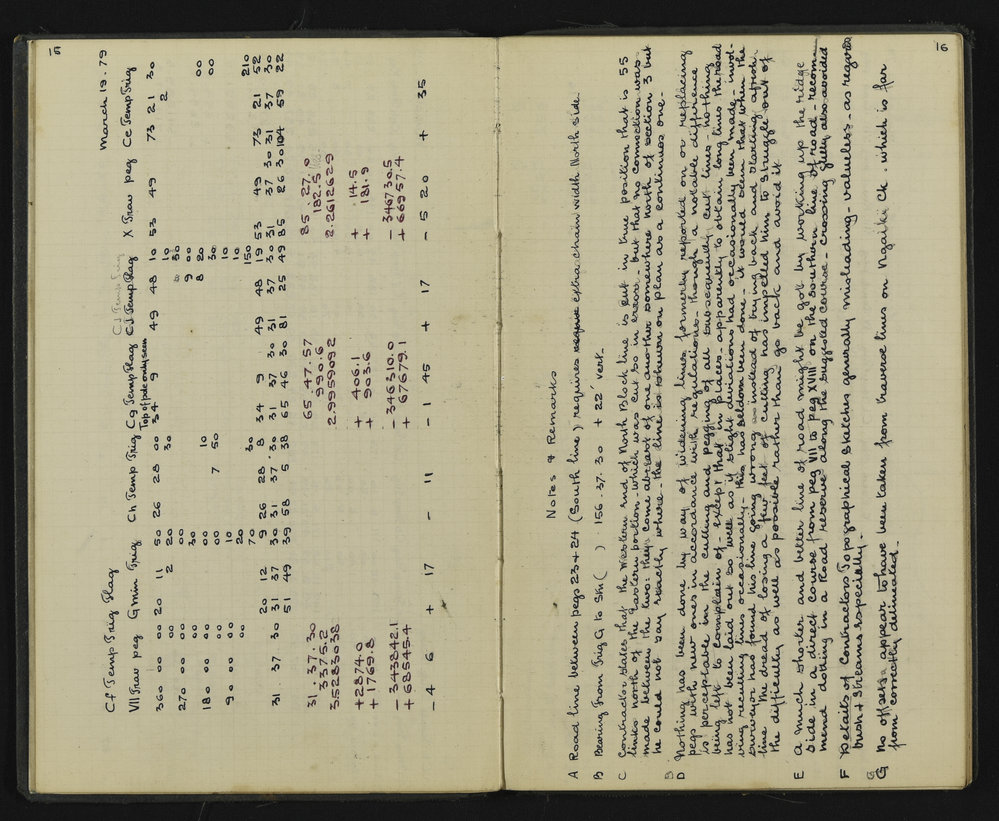 15
March 19. 79
C f Temp Trig Flag
VII Trav peg G min Trig Ch Temp Trig C g Temp Flag C J Temp Flag X Trav peg C c Temp Trig
Top of pole only seen
360 00 00 20 11 50 26 28 00 34 9 49 48 10 53 49 73 21 30
00 2 20 30 10 2
270 00 00 00 30
00 30 9 00
180 00 00 00 7 10 8 20 00
00 00 50 30 00
90 00 00 10 10
00 20 10
70 30 150 210
20 12 9 26 28 8 34 9 49 48 19 53 49 73 21 52
31 . 37 30 31 37 30 31 37 . 30 31 37 30 31 37 30 31 37 30 31 37 30
51 49 39 58 5 38 65 46 30 81 25 49 85 26 30 104 59 22
31 . 37 . 30 65 . 47 . 57 85 . 27 . 0
3375.2 990.6 182.5
3.5283038 2.9959092 2.2612629
+ 2874.0 + 406.1 + 14.5
+ 1769.8 + 903.6 + 181.9
- 343842.1 - 346310.0 - 346730.5
+ 68545.4 + 67679.1 + 66957.4
- 4 6 + 17 - 11 - 1 45 + 17 - 5 20 + 35
16
Notes & Remarks
A Road line between pegs 23 + 24 (South line) requires extra chain width North side.
B Bearing from Trig G to Stn ( ) . 156 . 37 . 30 + 22' vert.
C Contractor states that the Western end of North Block line is cut in true position that is 55
links north of the Eastern portion - which was cut so in error - but that no connection was
made between the two: they come abreast of one another somewhere north of section 3 but
he could not say exactly where - the line is shewn on plan as a continuous one -
D Nothing has been done by way of widening lines formerly reported on or replacing
pegs with new ones in accordance with regulations - though a notable difference
is perceptable in the cutting and pegging of all subsequently cut lines nothing
being left to complain of - except that in places - apparently to obtain long lines the road
has not been laid out so well as if slight deviations had occasionally been made, invol-
ving recutting lines occasionally - this has seldom been done - it would seem that when the
surveyor has found his line going wrong instead of trying back and starting afresh
the dread of losing a few feet of cutting has impelled him to struggle out of
the difficulty as well as possible rather than go back and avoid it
E A much shorter and better line of road might be got by working up the ridge
side in a direct course from peg VII to peg XVIII on the Southern line of road - recom-
mend dotting in a Road reserve along the suggested course - crossing gully also avoided
F Details of Contractors Topographical sketches generally misleading - valueless - as regards
bush & streams especially -
G No offsets appear to have been taken from traverse lines on Ngaikii Ck. which is far
from correctly delineated -